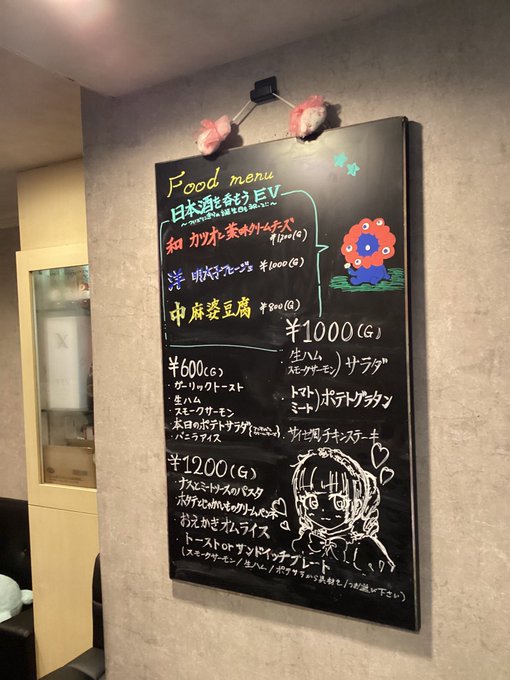 Food menu
日本酒を呑もう EV
和 カツオと薬味クリームチーズ
¥1200(G)
洋 明太子 ¥1000(G)
中 麻婆豆腐 ¥800(G)
¥1000(G)
・生ハム
スモークサーモン)サラダ
・トマト
ミート)ポテトグラタン
・サイゼ風チキンステーキ
¥600(G)
・ガーリックトースト
・生ハム
・スモークサーモン
・本日のポテトサラダ
・バニラアイス
¥1200(G)
・ナスとミートソースのパスタ
・ホタテとじゃがいものクリームパスタ
・おえかきオムライス
・トーストorサンドイッチプレート
(スモークサーモン/生ハム/ポテサラから具材を1つお選び下さい)